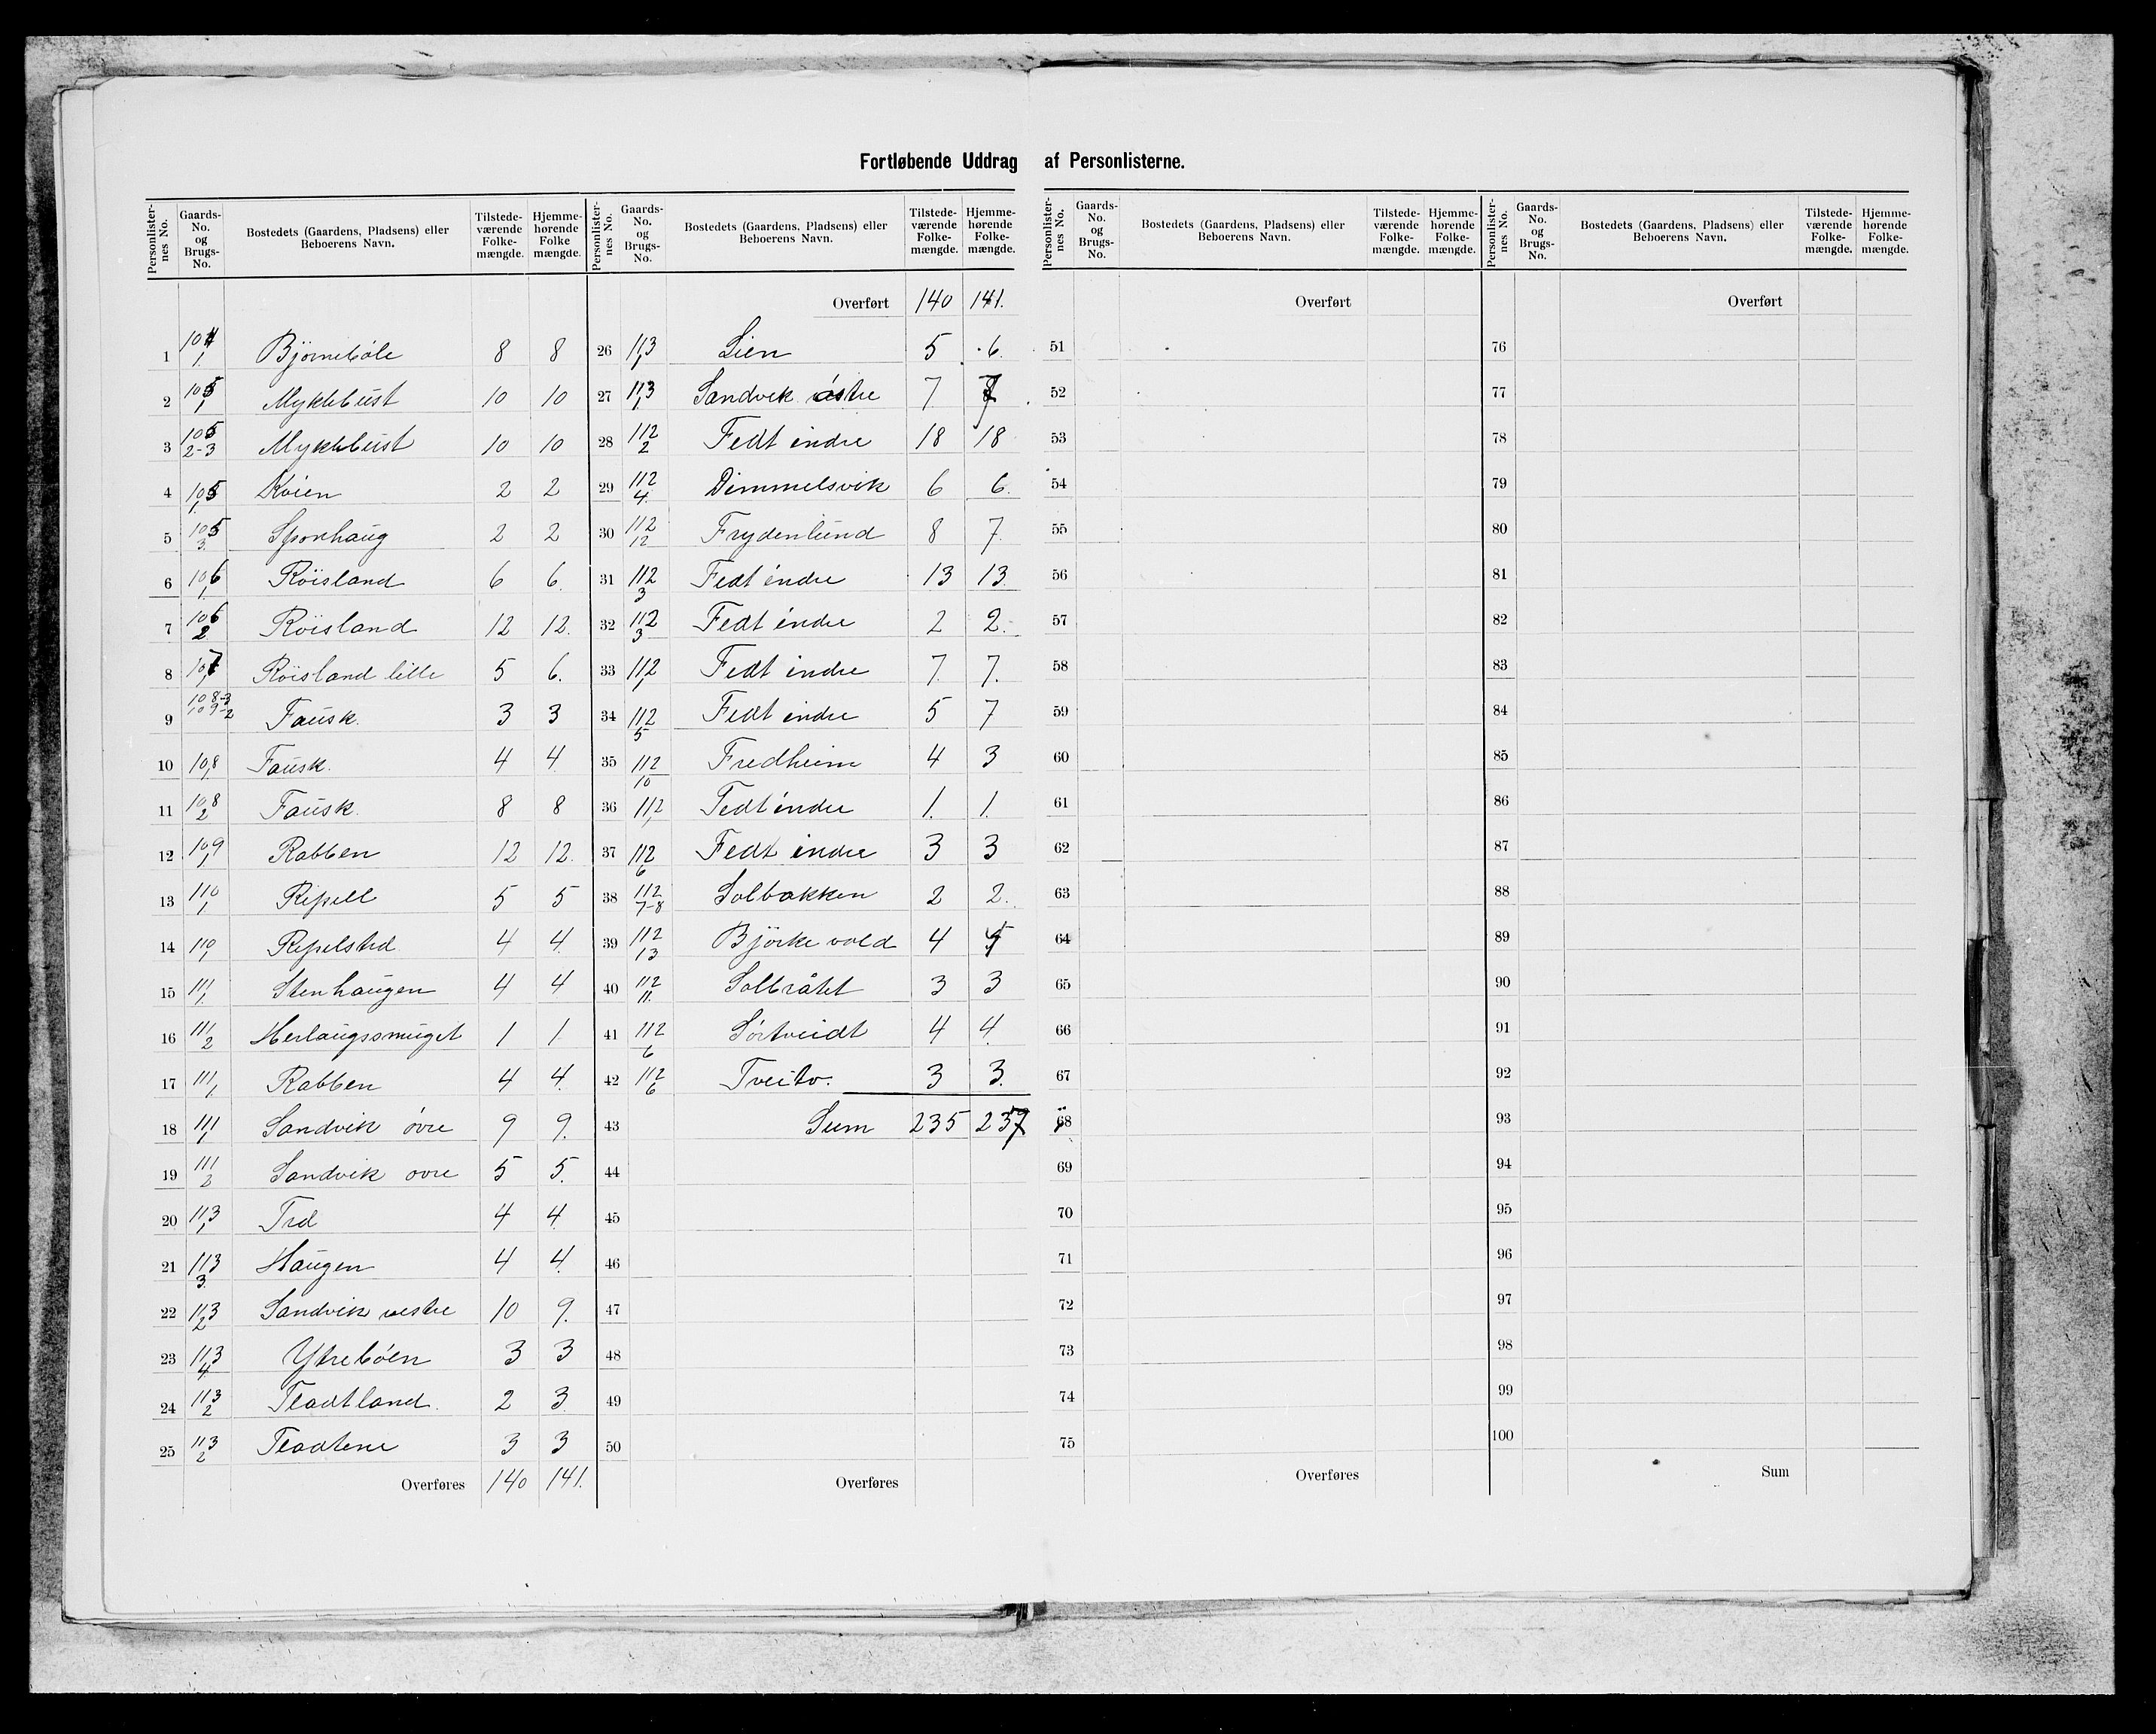 Fortløbende Uddrag af Personlisterne.
Personlisternes No. Gaards-No. og Brugs-No. Bostedets (Gaardens, Pladsens) eller Beboerens Navn. Tilstedeværende Folkemængde. Hjemmehørende Folkemængde.
1 104/1 Bjørnebøle 8 8
2 105/1 Myklebust 10 10
3 105/2-3 Myklebust 10 10
4 105/1 Kvien 2 2
5 105/3 Sporhaug 2 2
6 106/1 Röisland 6 6.
7 106/2 Röisland 12 12.
8 107/1 Röisland lille 5 6.
9 108-3 109-2 Fausk. 3 3
10 108/1 Fausk. 4 4
11 108/2 Fausk. 8 8
12 109/1 Rabben 12 12.
13 110/1 Ripell 5 5
14 110/1 Ripelstrd 4 4
15 111/1 Stenhaugen 4 4
16 111/2 Herlaugssmuget 1 1
17 111/1 Rabben 4 4.
18 111/1 Sandvik óvre 9 9.
19 111/2 Sandvik ovre 5 5.
20 113/1 Trd 4 4
21 113/3 Haugen 4 4.
22 113/2 Sandvik vestre 10 9.
23 113/4 Ytrebóen 3 3
24 113/2 Teadtland. 2 3
25 113/2 Teadtene 3 3
Overføres 140 141.
Overført 140 141.
26 113/1 Lien 5 6.
27 113/1 Sandvik óstre 7
28 112/2 Fedt indre 18 18
29 112/4 Dimmelsvik 6 6.
30 112/12 Frydenlund 8 7.
31 112/3 Fedt indre 13 13.
32 112/3 Fedt indre 2 2.
33 112/1 Fedt indre 7. 7.
34 112/5 Fedt indre 5 7
35 112/10 Fredheim 4 3
36 112/1 Fedt indre 1. 1.
37 112/6 Fedt indre 3 3
38 112/7-8 Solbakken 2 2.
39 112/13 Björkevold 4
40 112/11. Solbråtet 3 3
41 112/6 Sörtveidt 4 4
42 112/6 Tveito. 3 3.
43 Sum 235 237
44
45
46
47
48
49
50
Overføres
Personlisternes No. Gaards-No. og Brugs-No. Bostedets (Gaardens, Pladsens) eller Beboerens Navn. Tilstedeværende Folkemængde. Hjemmehørende Folkemængde.
Overført
51
52
53
54
55
56
57
58
59
60
61
62
63
64
65
66
67
68
69
70
71
72
73
74
75
Overføres
Overført
76
77
78
79
80
81
82
83
84
85
86
87
88
89
90
91
92
93
94
95
96
97
98
99
100
Sum